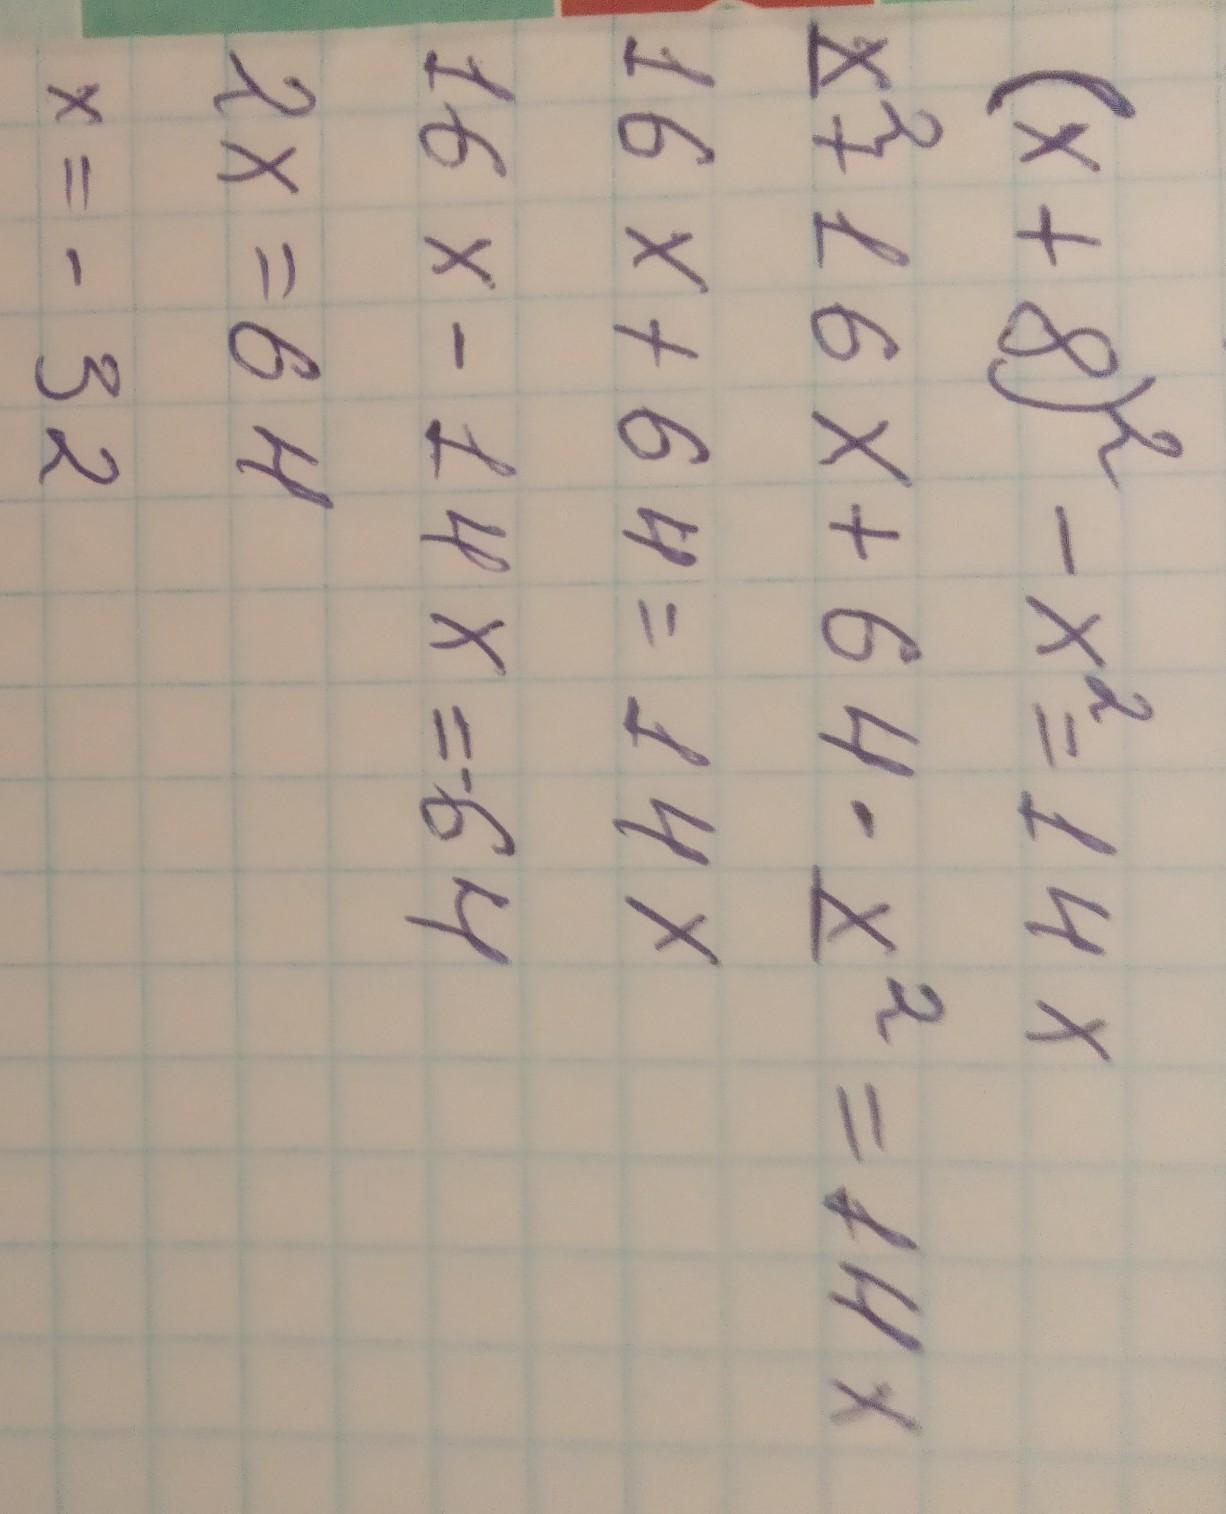 (x+8)² - x² = 14x
x² + 16x + 64 - x² = 14x
16x + 64 = 14x
16x - 14x = -64
2x = 64
x = -32